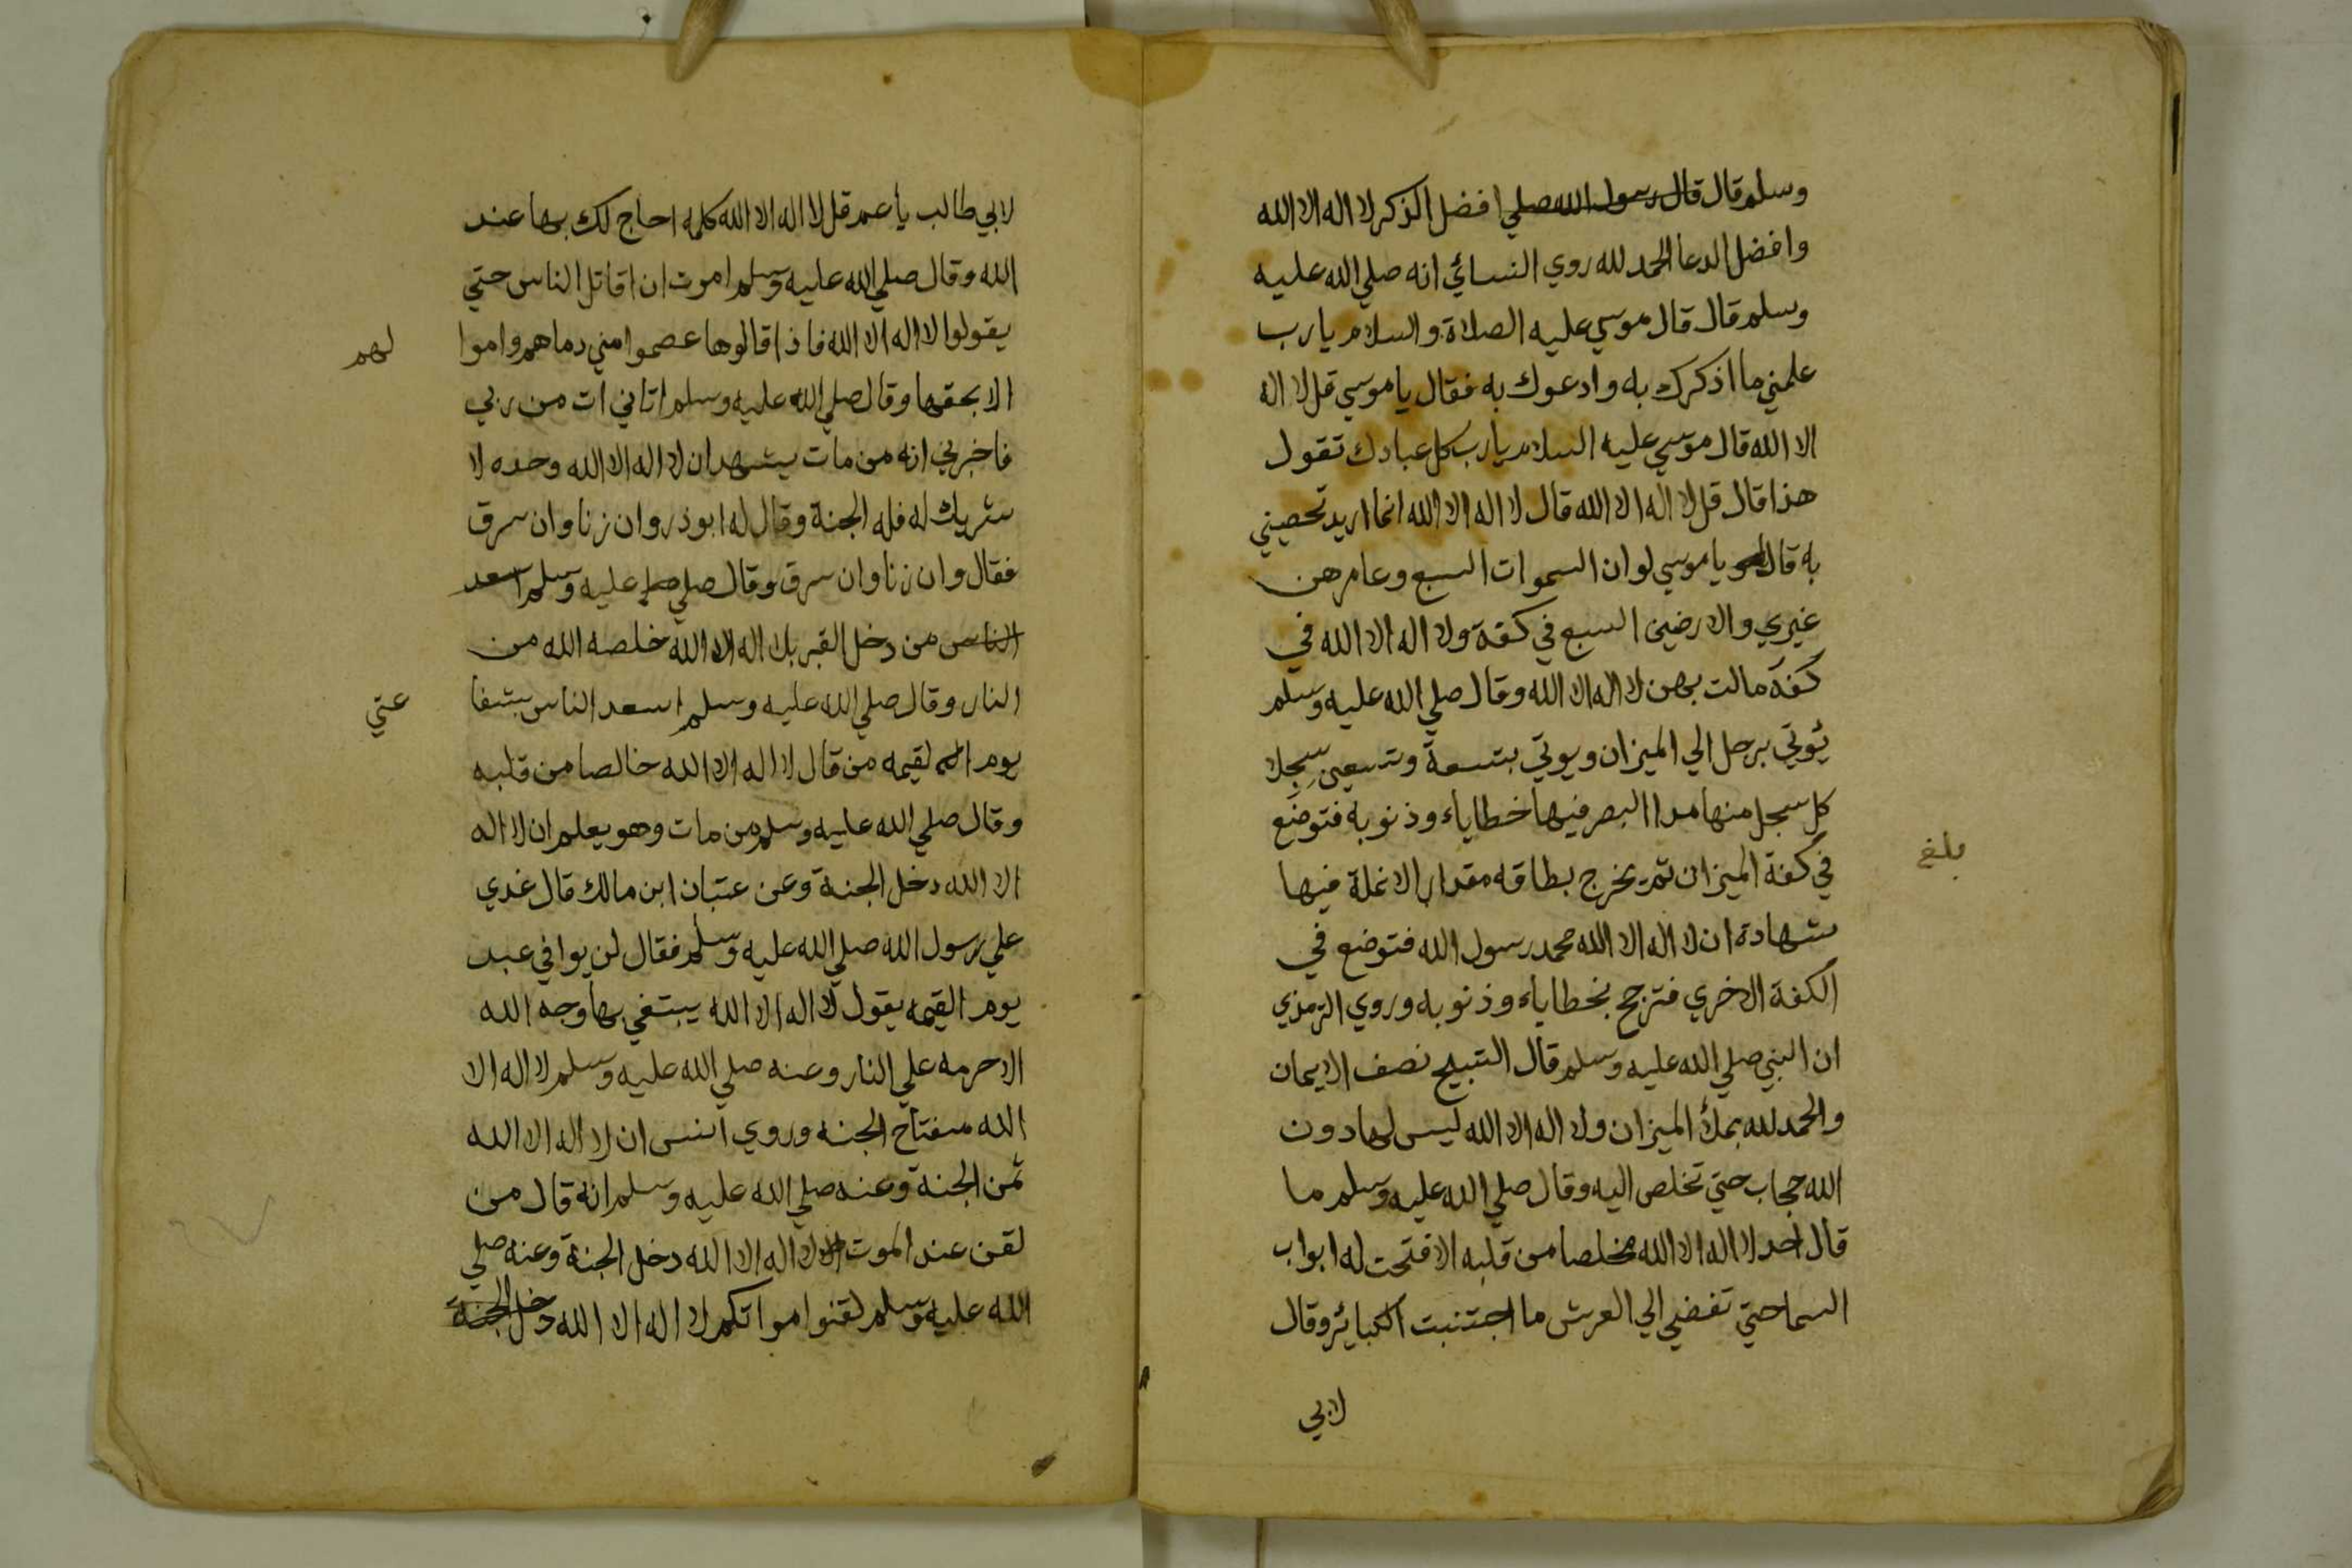 وسلم قال قال رسول الله صلي افضل الذكر لا اله الا الله
وافضل الدعا الحمد لله روي النسائي انه صلي الله عليه
وسلم قال قال موسي عليه الصلاة والسلام يا رب
علمني ما اذكرك به وادعوك به فقال يا موسي قل لا اله
الا الله قال موسي عليه السلام يا رب كل عبادك تقول
هذا قال قل لا اله الا الله قال لا اله الا الله انما اريد تحصيني
به قال يا موسي لو ان السموات السبع وعامرهن
غيري والارضين السبع في كفة ولا اله الا الله في
كفة مالت بهن لا اله الا الله وقال صلي الله عليه وسلم
يؤتي برجل الي الميزان ويوتي بتسعة وتسعين سجلا
كل سجل منها مدا البصر فيها خطاياه وذنوبه فتوضع
في كفة الميزان ثم يخرج بطاقه مقدار الانملة فيها
شهادة ان لا اله الا الله محمد رسول الله فتوضع في
الكفة الاخري فترجح بخطاياه وذنوبه وروي الترمذي
ان النبي صلي الله عليه وسلم قال التسبيح نصف الايمان
والحمد لله يملأ الميزان ولا اله الا الله ليس لها دون
الله حجاب حتي تخلص اليه وقال صلي الله عليه وسلم ما
قال احد لا اله الا الله مخلصا من قلبه الا فتحت له ابواب
السما حتي تفضي الي العرش ما اجتنبت الكبائر وقال
لابي
بلغ
لابي طالب يا عم قل لا اله الا الله كلمه احاج لك بها عند
الله وقال صلي الله عليه وسلم اموت ان اقاتل الناس حتي
يقولوا لا اله الا الله فاذا قالوها عصموا مني دماهم واموا
لهم
الا بحقها وقال صلي الله عليه وسلم اتاني ات من ربي
فاخبرني انه من مات يشهد ان لا اله الا الله وحده لا
شريك له فله الجنة وقال له ابو ذر وان زنا وان سرق
فقال وان زنا وان سرق وقال صلي عليه وسلم اسعد
الناس من دخل القبر بلا اله الا الله خلصه الله من
النار وقال صلي الله عليه وسلم اسعد الناس بشفا
عتي
يوم القيمه من قال لا اله الا الله خالصا من قلبه
وقال صلي الله عليه وسلم من مات وهو يعلم ان لا اله
الا الله دخل الجنة وعن عتبان ابن مالك قال غدي
علي رسول الله صلي الله عليه وسلم فقال لن يوافي عبد
يوم القيمه يقول لا اله الا الله يبتغي بها وجه الله
الا حرمه علي النار وعنه صلي الله عليه وسلم لا اله الا
الله مفتاح الجنه وروي انس ان لا اله الا الله
ثمن الجنة وعنه صلي الله عليه وسلم انه قال من
لقن عند الموت لا اله الا الله دخل الجنة وعنه صلي
الله عليه وسلم لقنوا مواتكم لا اله الا الله دخل الجنة